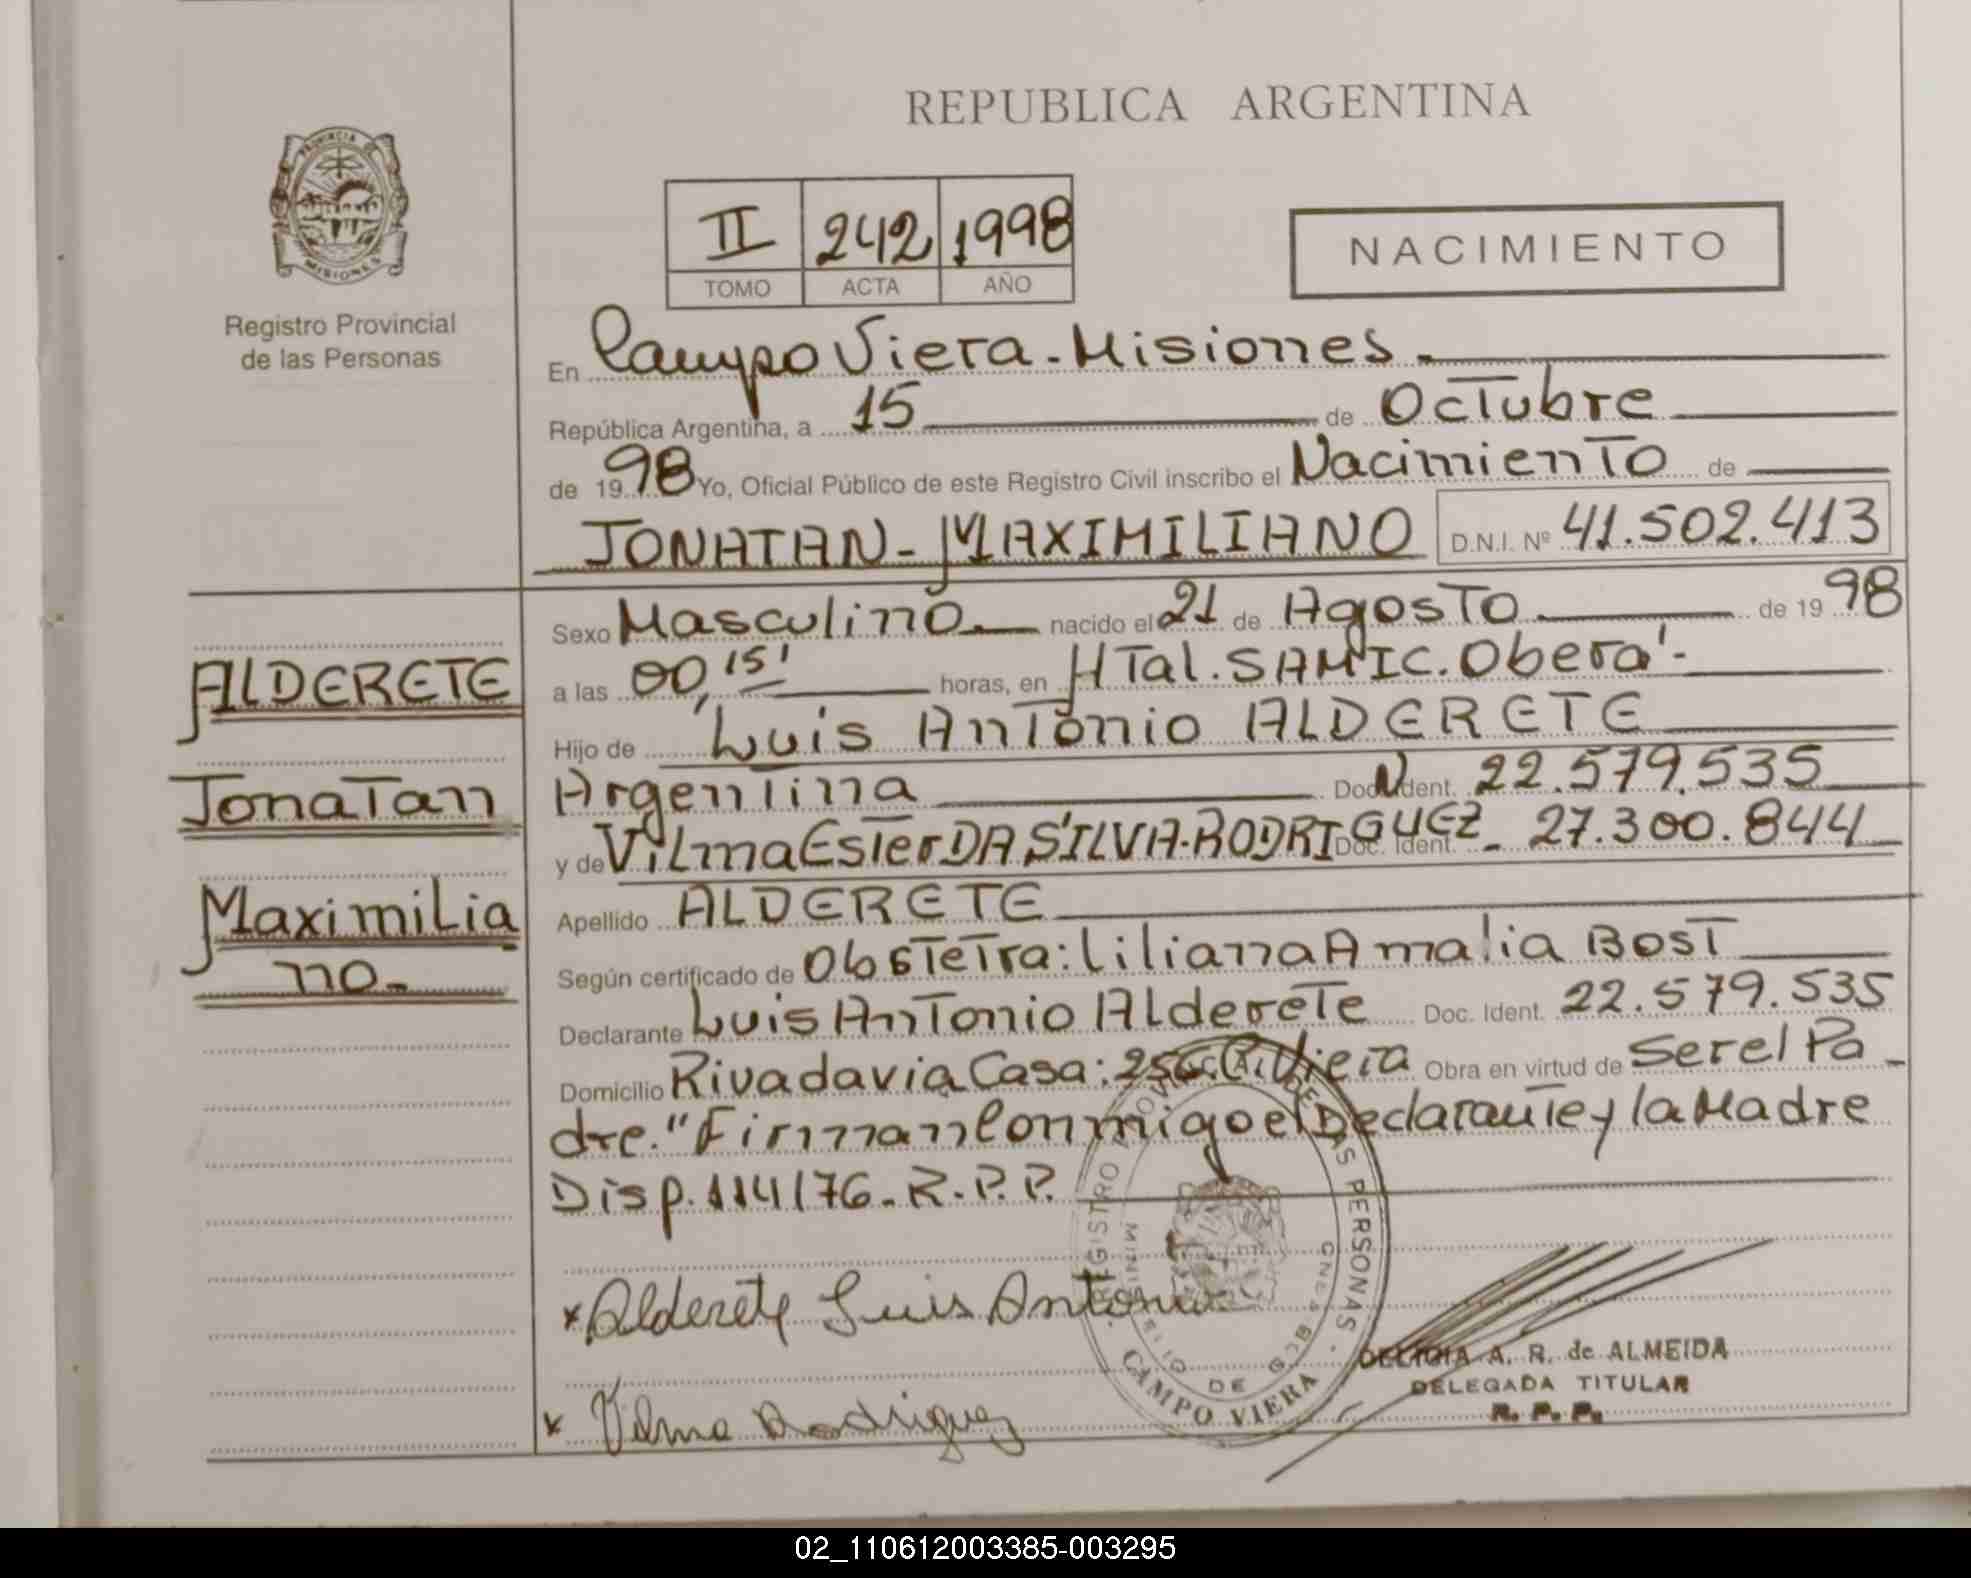 REPUBLICA ARGENTINA
PROVINCIA DE
MISIONES
Registro Provincial
de las Personas
II 242 1998
TOMO ACTA AÑO
NACIMIENTO
En Campo Viera - Misiones.
República Argentina, a 15 de Octubre
de 1998 Yo, Oficial Público de este Registro Civil inscribo el Nacimiento de
JONATAN - MAXIMILIANO D.N.I. Nº 41.502.413
Sexo Masculino nacido el 21 de Agosto de 1998
a las 00,15' horas, en HTal. SAMIC. Oberá -
Hijo de Luis Antonio ALDERETE
Argentina Doc. Ident. 22.579.535
y de Vilma Ester DA SILVA - RODRIGUEZ - Doc. Ident. 27.300.844
Apellido ALDERETE
Según certificado de Obstetra: Liliana Amalia Bost
Declarante Luis Antonio Alderete Doc. Ident. 22.579.535
Domicilio Rivadavia Casa: 256 C. Viera Obra en virtud de Ser el Pa-
dre. "Firman Conmigo el Declarante y la Madre
Disp. 114/76 - R.P.P.
ALDERETE
Jonatan
Maximilia
no -
x Alderete Luis Antonio
x Vilma Rodriguez
REGISTRO PROVINCIAL DE LAS PERSONAS
CAMPO VIERA
DELICIA A. R. de ALMEIDA
DELEGADA TITULAR
R. P. P.
02_110612003385-003295